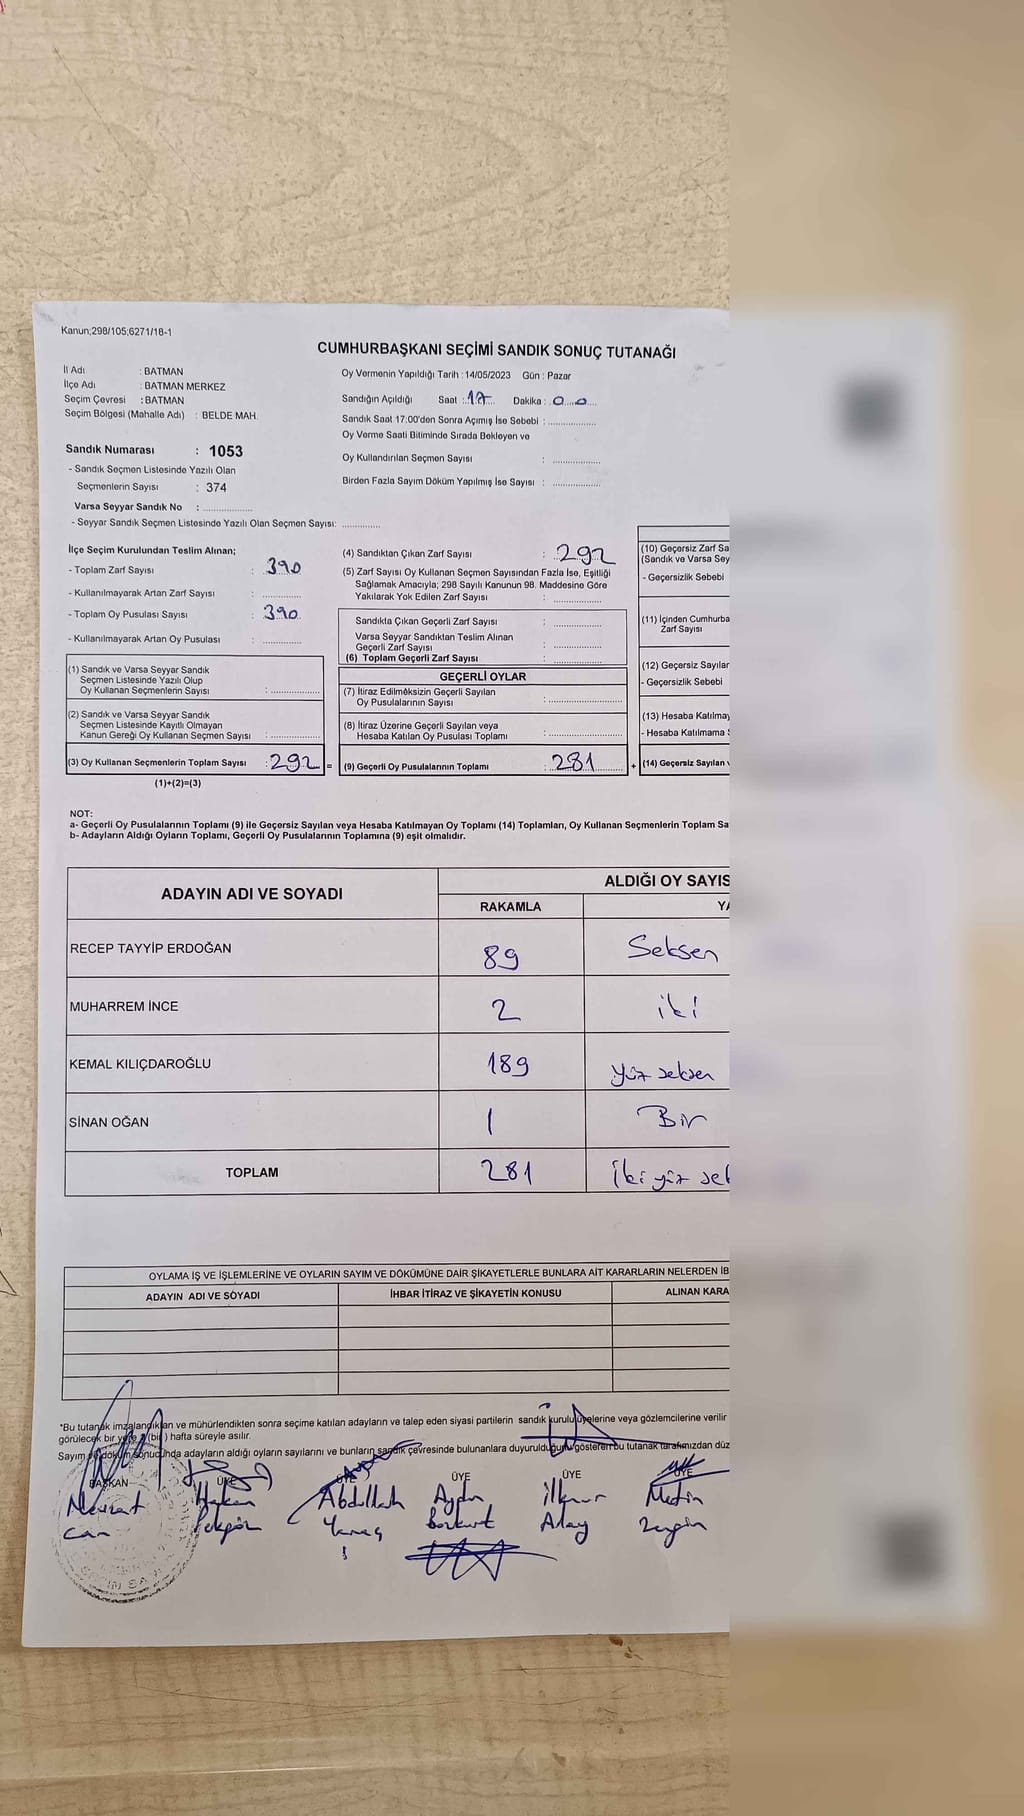 Kanun;298/105;6271/18-1
CUMHURBAŞKANI SEÇİMİ SANDIK SONUÇ TUTANAĞI
İl Adı : BATMAN
İlçe Adı : BATMAN MERKEZ
Seçim Çevresi : BATMAN
Seçim Bölgesi (Mahalle Adı) : BELDE MAH.
Oy Vermenin Yapıldığı Tarih : 14/05/2023 Gün : Pazar
Sandığın Açıldığı Saat : 17 Dakika : 00
Sandık Saat 17:00'den Sonra Açımış İse Sebebi : ..................
Oy Verme Saati Bitiminde Sırada Bekleyen ve
Oy Kullandırılan Seçmen Sayısı : ..................
Birden Fazla Sayım Döküm Yapılmış İse Sayısı : ..................
Sandık Numarası : 1053
- Sandık Seçmen Listesinde Yazılı Olan
Seçmenlerin Sayısı : 374
Varsa Seyyar Sandık No : ..................
- Seyyar Sandık Seçmen Listesinde Yazılı Olan Seçmen Sayısı: ..............
İlçe Seçim Kurulundan Teslim Alınan;
- Toplam Zarf Sayısı : 390
- Kullanılmayarak Artan Zarf Sayısı : ..............
- Toplam Oy Pusulası Sayısı : 390
- Kullanılmayarak Artan Oy Pusulası : ..............
(1) Sandık ve Varsa Seyyar Sandık
Seçmen Listesinde Yazılı Olup
Oy Kullanan Seçmenlerin Sayısı : ..................
(2) Sandık ve Varsa Seyyar Sandık
Seçmen Listesinde Kayıtlı Olmayan
Kanun Gereği Oy Kullanan Seçmen Sayısı : ..................
(3) Oy Kullanan Seçmenlerin Toplam Sayısı : 292 =
(1)+(2)=(3)
(4) Sandıktan Çıkan Zarf Sayısı : 292
(5) Zarf Sayısı Oy Kullanan Seçmen Sayısından Fazla İse, Eşitliği
Sağlamak Amacıyla; 298 Sayılı Kanunun 98. Maddesine Göre
Yakılarak Yok Edilen Zarf Sayısı : ..................
Sandıkta Çıkan Geçerli Zarf Sayısı : ..................
Varsa Seyyar Sandıktan Teslim Alınan
Geçerli Zarf Sayısı : ..................
(6) Toplam Geçerli Zarf Sayısı : ..................
GEÇERLİ OYLAR
(7) İtiraz Edilmeksizin Geçerli Sayılan
Oy Pusulalarının Sayısı : ..................
(8) İtiraz Üzerine Geçerli Sayılan veya
Hesaba Katılan Oy Pusulası Toplamı : ..................
(9) Geçerli Oy Pusulalarının Toplamı : 281 +
(10) Geçersiz Zarf Sa
(Sandık ve Varsa Sey
- Geçersizlik Sebebi
(11) İçinden Cumhurba
Zarf Sayısı
(12) Geçersiz Sayılar
- Geçersizlik Sebebi
(13) Hesaba Katılmay
- Hesaba Katılmama
(14) Geçersiz Sayılan v
NOT:
a- Geçerli Oy Pusulalarının Toplamı (9) ile Geçersiz Sayılan veya Hesaba Katılmayan Oy Toplamı (14) Toplamları, Oy Kullanan Seçmenlerin Toplam Sa
b- Adayların Aldığı Oyların Toplamı, Geçerli Oy Pusulalarının Toplamına (9) eşit olmalıdır.
ADAYIN ADI VE SOYADI
ALDIĞI OY SAYIS
RAKAMLA YA
RECEP TAYYİP ERDOĞAN 89 Seksen
MUHARREM İNCE 2 iki
KEMAL KILIÇDAROĞLU 189 yüz seksen
SİNAN OĞAN 1 Bir
TOPLAM 281 İki yüz sek
OYLAMA İŞ VE İŞLEMLERİNE VE OYLARIN SAYIM VE DÖKÜMÜNE DAİR ŞİKAYETLERLE BUNLARA AİT KARARLARIN NELERDEN İB
ADAYIN ADI VE SOYADI İHBAR İTİRAZ VE ŞİKAYETİN KONUSU ALINAN KARA
*Bu tutanak imzalandıktan ve mühürlendikten sonra seçime katılan adayların ve talep eden siyasi partilerin sandık kurulu üyelerine veya gözlemcilerine verilir
görülecek bir yere (bir) hafta süreyle asılır.
Sayım ve döküm sonucunda adayların aldığı oyların sayılarını ve bunların sandık çevresinde bulunanlara duyurulduğunu gösteren bu tutanak tarafımızdan düz
BAŞKAN ÜYE ÜYE ÜYE ÜYE ÜYE
Nevzat Hakan Abdullah Aydın İlknur Metin
Can Pekgöz Bozkurt Alay Zengin